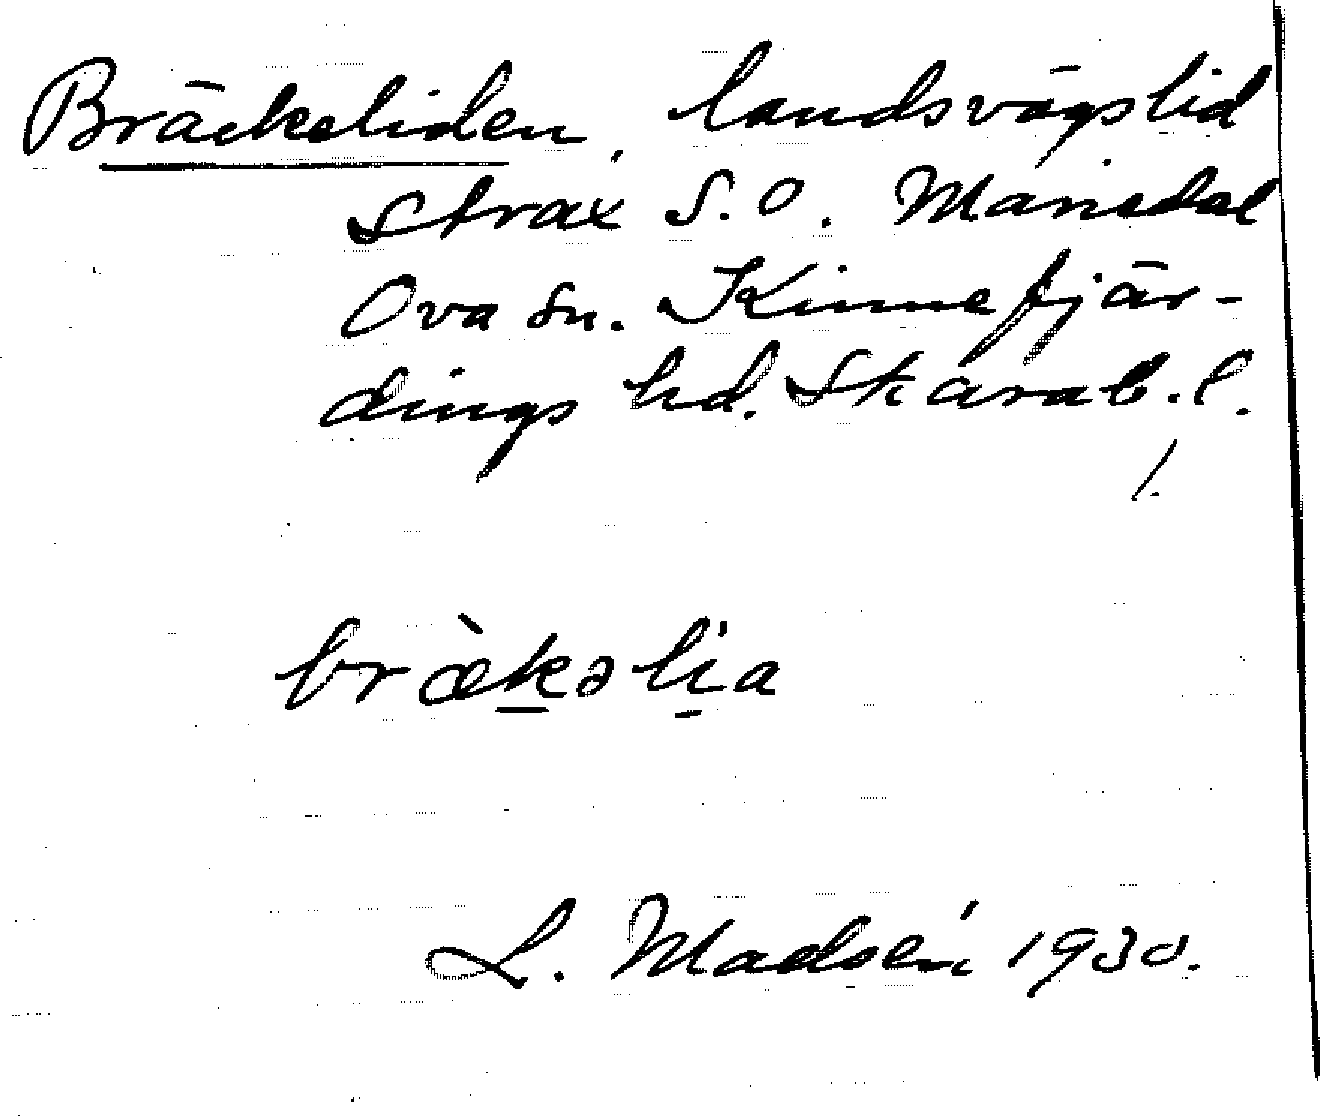 Bräckeliden, landsvägslid
strax S.O. Mariedal
Ova sn. Kinnefjär-
dings hd. Skarab.l.
/.
bræ̀kəlia
L. Madsén 1930.